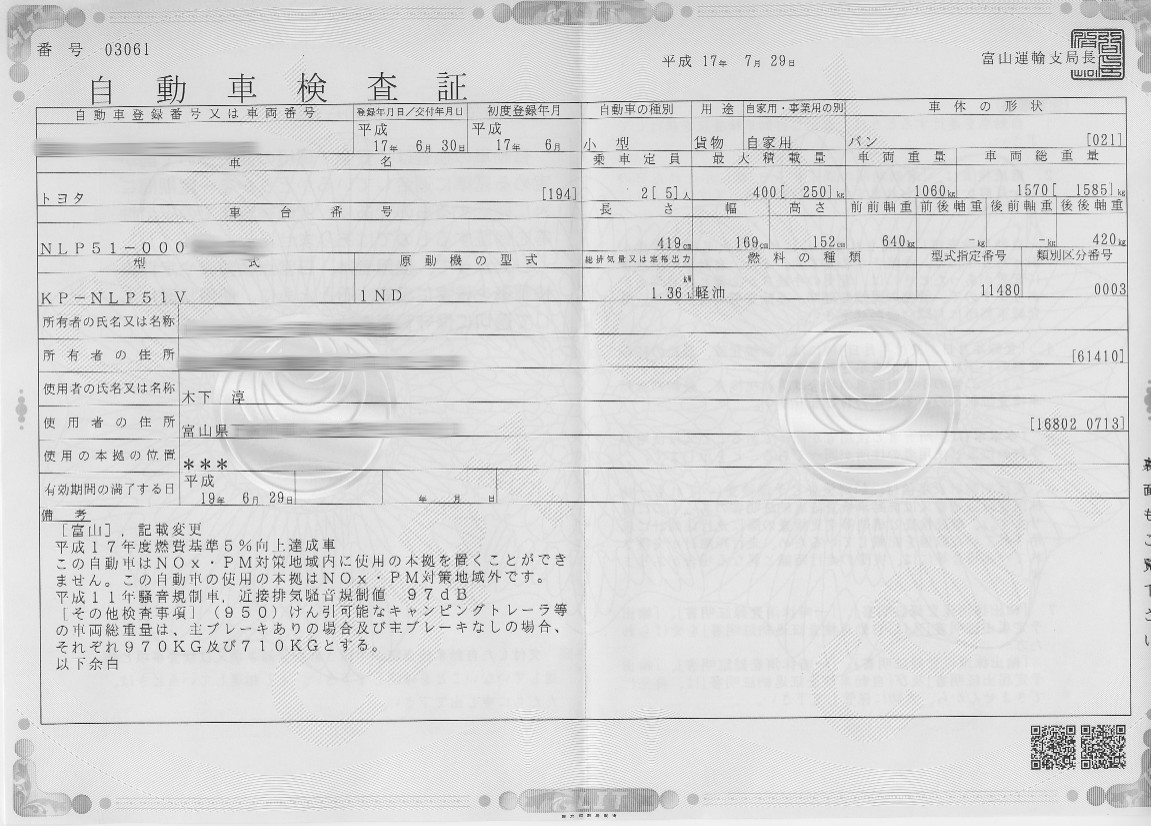 番号 03061
平成 17年 7月 29日 富山運輸支局長
自動車検査証
自動車登録番号又は車両番号 登録年月日/交付年月日 初度登録年月 自動車の種別 用途 自家用・事業用の別 車体の形状
平成 17年 6月 30日 平成 17年 6月 小型 貨物 自家用 バン [021]
車名 乗車定員 最大積載量 車両重量 車両総重量
トヨタ [194] 2[ 5]人 400[ 250]kg 1060kg 1570[ 1585]kg
車台番号 長さ 幅 高さ 前前軸重 前後軸重 後前軸重 後後軸重
NLP51-000 419cm 169cm 152cm 640kg -kg -kg 420kg
型式 原動機の型式 総排気量又は定格出力 燃料の種類 型式指定番号 類別区分番号
KP-NLP51V 1ND 1.36 kW L 軽油 11480 0003
所有者の氏名又は名称
所有者の住所 [61410]
使用者の氏名又は名称 木下 淳
使用者の住所 富山県 [16802 0713]
使用の本拠の位置 ***
有効期間の満了する日 平成 19年 6月 29日 年 月 日
備考
[富山],記載変更
平成17年度燃費基準5%向上達成車
この自動車はNOx・PM対策地域内に使用の本拠を置くことができ
ません。この自動車の使用の本拠はNOx・PM対策地域外です。
平成11年騒音規制車,近接排気騒音規制値 97dB
[その他検査事項](950)けん引可能なキャンピングトレーラ等
の車両総重量は、主ブレーキありの場合及び主ブレーキなしの場合、
それぞれ970KG及び710KGとする。
以下余白